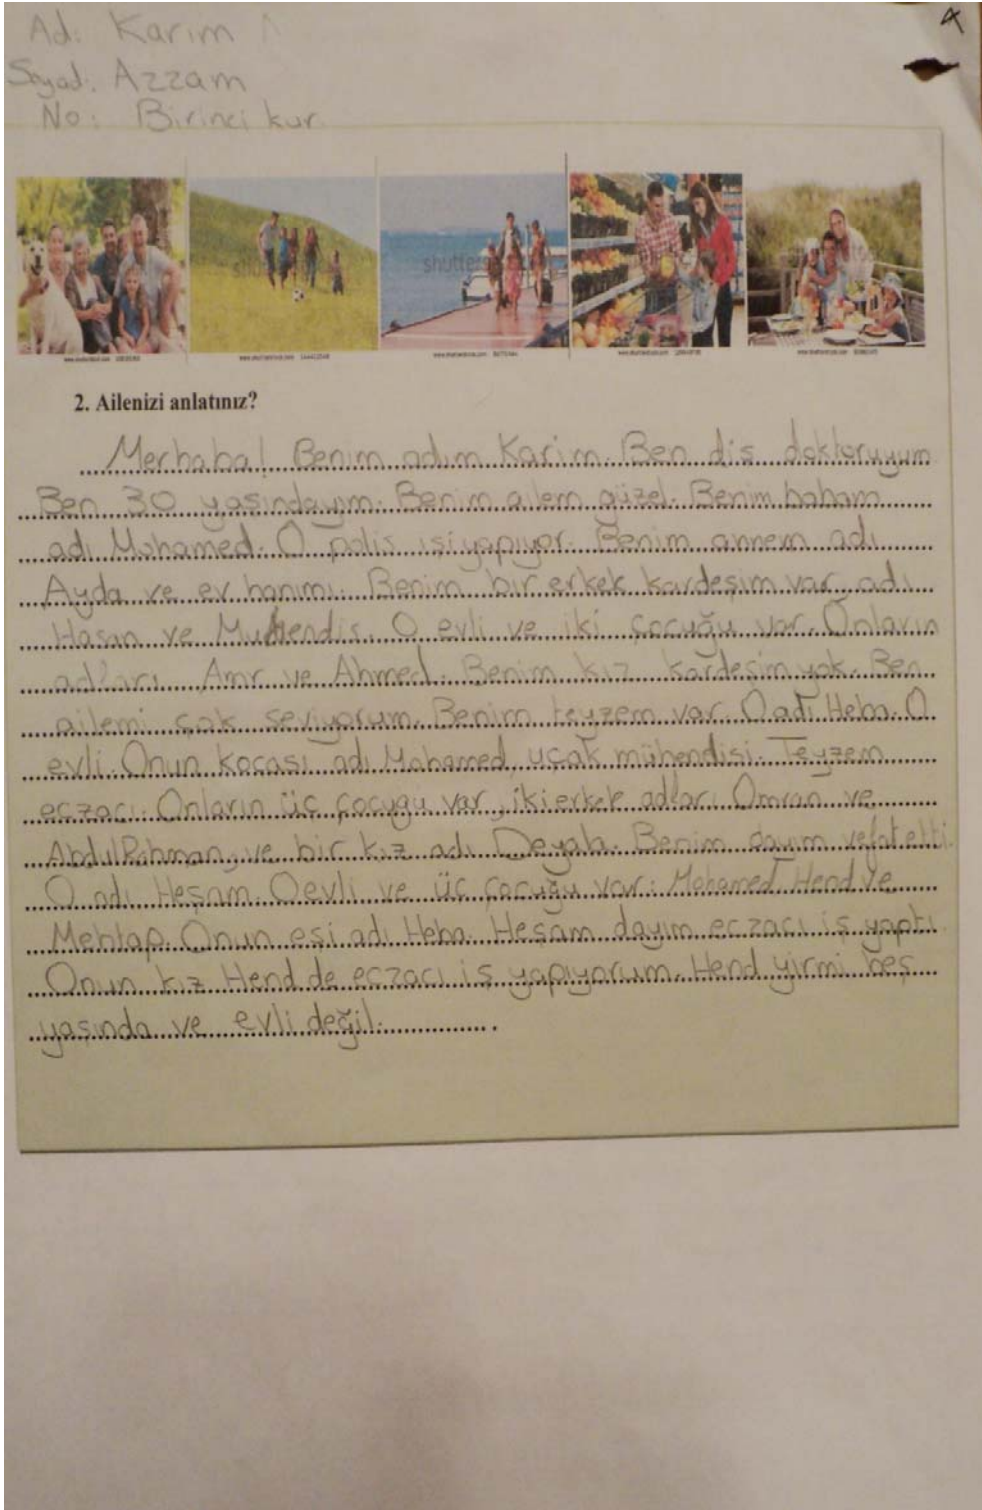 Ad: Karim
Soyad: Azzam
No: Birinci kur
2. Ailenizi anlatınız?
Merhaba! Benim adım Karim. Ben dis doktoruyum
Ben 30 yasındayım. Benim ailem güzel. Benim babam
adı Mohamed. O polis işi yapıyor. Benim annem adı
Ayda ve ev hanımı. Benim bir erkek kardeşim var, adı
Hasan ve Muhendis. O evli ve iki çocuğu var. Onların
adları Amr ve Ahmed. Benim kız kardeşim yok. Ben
ailemi çok seviyorum. Benim teyzem var. O adı Heba. O
evli. Onun kocası adı Mohamed, uçak mühendisi. Teyzem
eczacı. Onların üç çocuğu var, iki erkek adları Omran ve
AbdulRahman, ve bir kız adı Deyala. Benim dayım vefat etti.
O adı Heşam. O evli ve üç çocuğu var: Mohamed Hend Ve
Mehtap. Onun eşi adı Heba. Heşam dayım eczacı iş yaptı
Onun kız Hend de eczacı iş yapıyorum. Hend yirmi beş
yaşında ve evli değil.